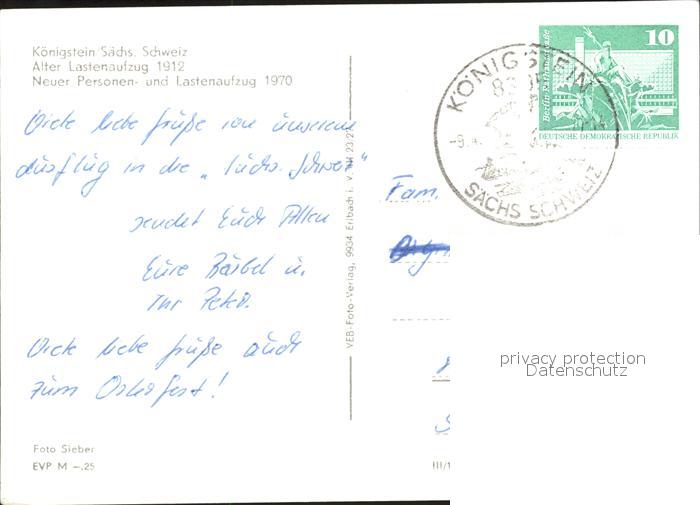 Königstein/Sächs. Schweiz
Alter Lastenaufzug 1912
Neuer Personen- und Lastenaufzug 1970
Viele liebe Grüße von unserem
Ausflug in die „Sächs. Schweiz"
sendet Euch Allen
Eure Bärbel u.
Ihr Peter.
Viele liebe Grüße auch
zum Osterfest!
Foto Sieber
EVP M –.25
VEB-Foto-Verlag, 9934 Erlbach i. V.
III/1
10
Berlin-Rathausstraße
DEUTSCHE DEMOKRATISCHE REPUBLIK
KÖNIGSTEIN
SÄCHS SCHWEIZ
Fam.
privacy protection
Datenschutz